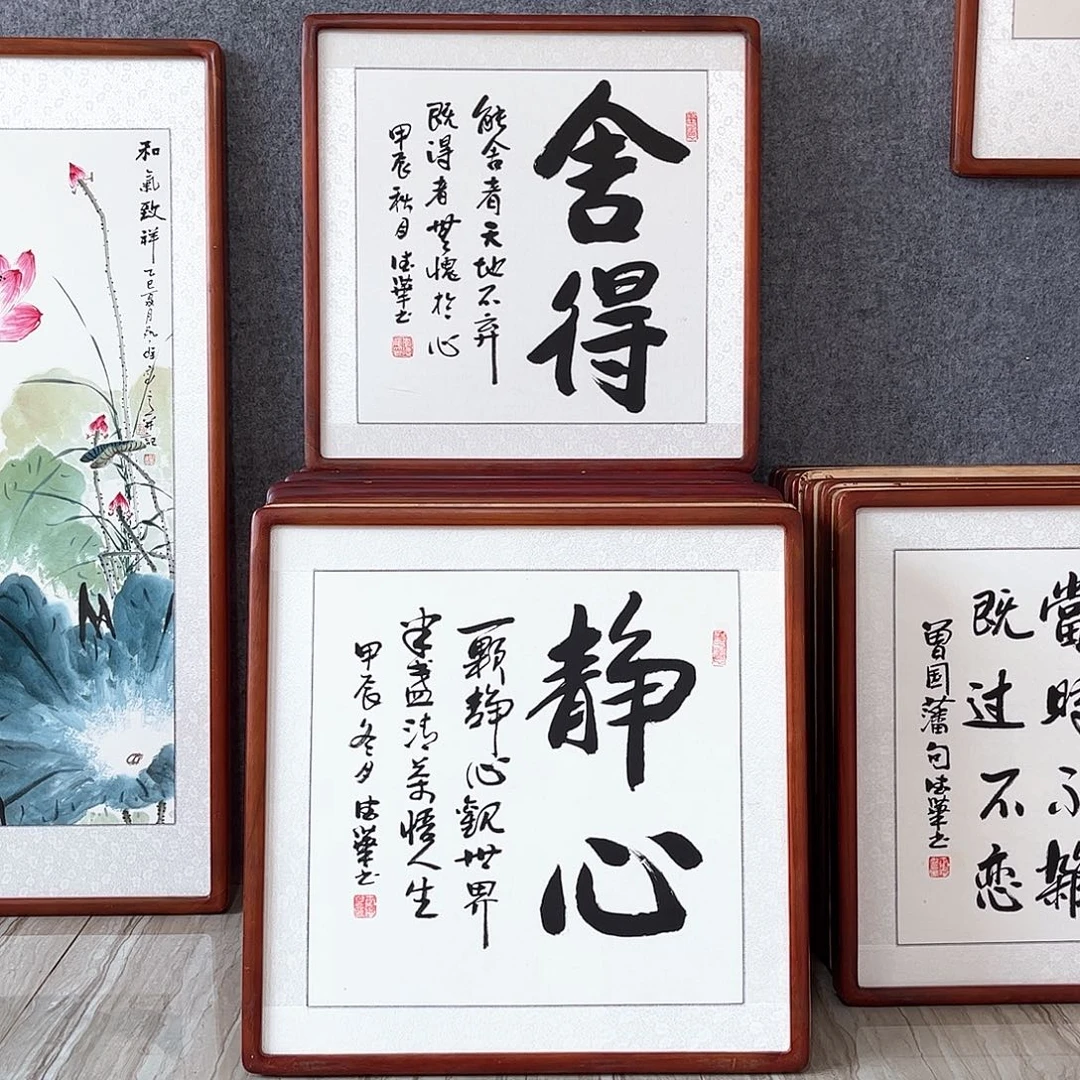 和氣致祥
乙巳夏月
舍得
能舍者天地不弃
既得者無愧於心
甲辰秋月 德華书
静心
一颗静心觀世界
半盏清茶悟人生
甲辰冬月 德華书
當時不雜
既过不恋
曾国藩句 德華书